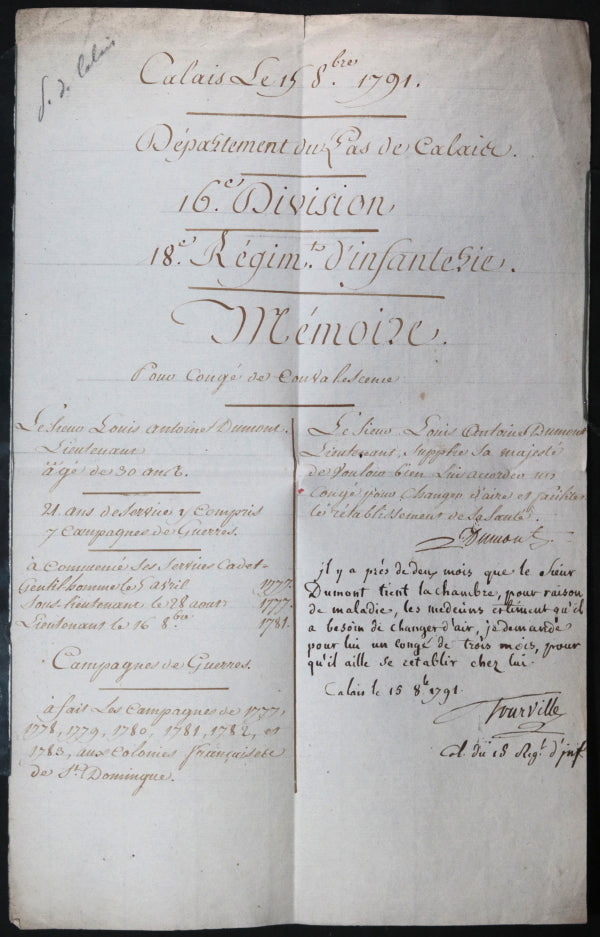 P. de Calais
Calais Le 15 8.bre 1791.
Département du Pas de Calais.
16.e Division
18.e Régim.t d'infanterie.
Mémoire.
Pour Congé de Convalescence
Le Sieur Louis Antoine Dumont.
Lieutenant
âgé de 30 ans.
21 ans de service y compris
7 campagnes de Guerres.
à Commencé ses Services Cadet-
Gentilhomme le 5 avril 1777.
Sous-lieutenant le 28 aout 1777.
Lieutenant le 16 8bre 1781.
Campagnes de Guerres.
à fait Les Campagnes de 1777,
1778, 1779, 1780, 1781, 1782, et
1783, aux Colonies françaises
de St. Domingue.
Le Sieur Louis Antoine Dumont
Lieutenant, Supplie Sa majesté
de Vouloir bien Lui accorder un
Congé pour Changer d'aire et faciliter
le rétablissement de Sa Santé.
Dumont
il y a près de deux mois que le Sieur
Dumont tient la chambre, pour raison
de maladie, les medecins estiment qu'il
a besoin de changer d'air, je demande
pour lui un congé de trois mois, pour
qu'il aille se retablir chez lui.
Calais le 15 8b 1791
Tourville
Col. du 18 Reg.t d'inf